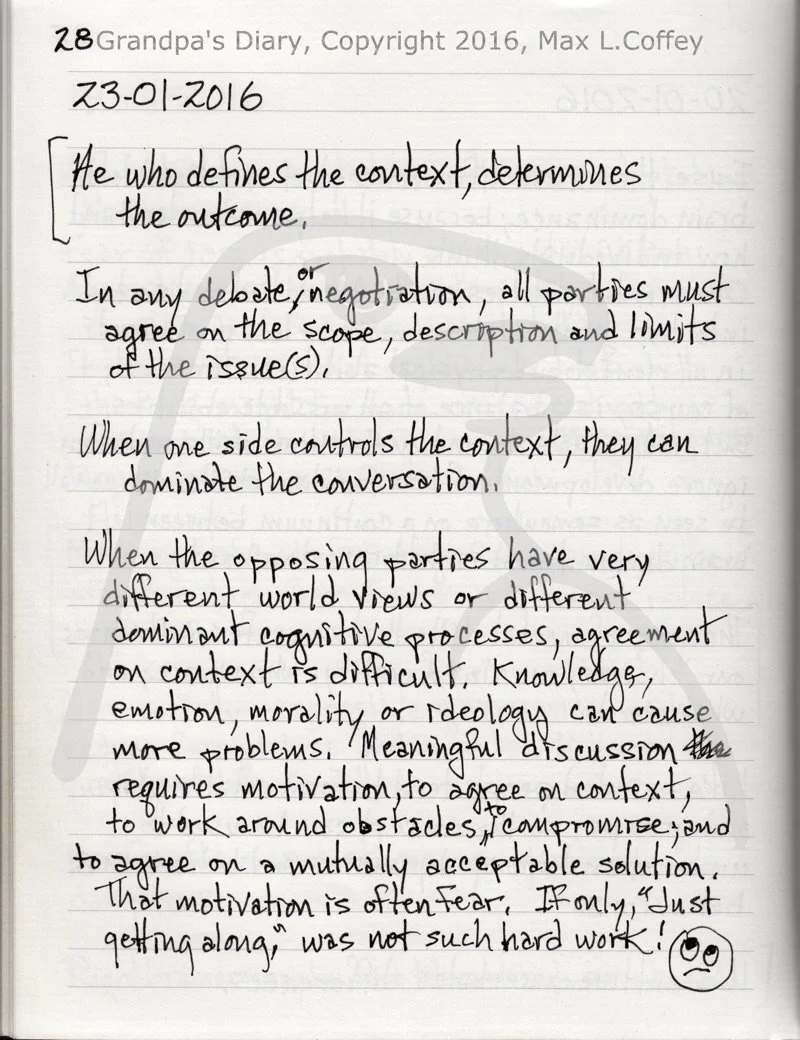 28 Grandpa's Diary, Copyright 2016, Max L.Coffey
23-01-2016
He who defines the context, determines
the outcome.
In any debate, or negotiation, all parties must
agree on the scope, description and limits
of the issue(s).
When one side controls the context, they can
dominate the conversation.
When the opposing parties have very
different world views or different
dominant cognitive processes, agreement
on context is difficult. Knowledge,
emotion, morality or ideology can cause
more problems. Meaningful discussion
requires motivation, to agree on context,
to work around obstacles, to compromise; and
to agree on a mutually acceptable solution.
That motivation is often fear. If only, "Just
getting along," was not such hard work!